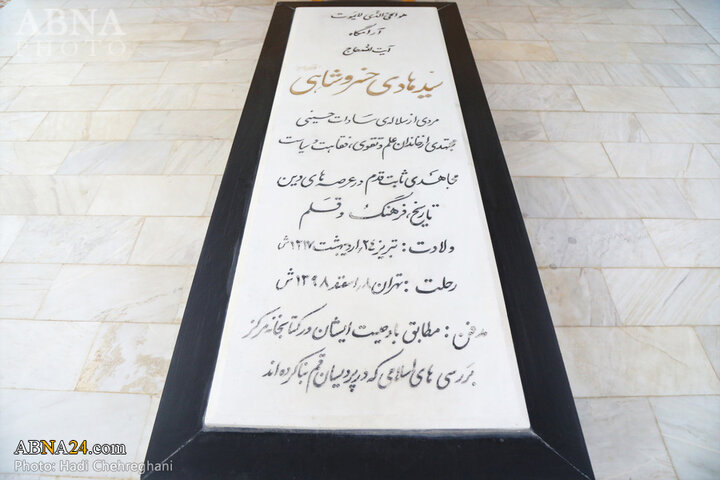 ABNA
PHOTO
هو الحی الذی لایموت
آرامگاه
آیت الله حاج
سید هادی خسروشاهی
مردی از سلاله‌ی سادات حسینی
مجتهدی از خاندان علم و تقوی، فقاهت و سیاست
مجاهدی ثابت قدم در عرصه های دین
تاریخ، فرهنگ و قلم
ولادت: تبریز ۲۴ اردیبهشت ۱۳۱۷ ش
رحلت: تهران ۸ اسفند ۱۳۹۸ ش
مدفن: مطابق با وصیت ایشان در کتابخانه مرکز
بررسی های اسلامی که در پردیسان قم بنا کرده اند
ABNA24.com
Photo: Hadi Chehreghani